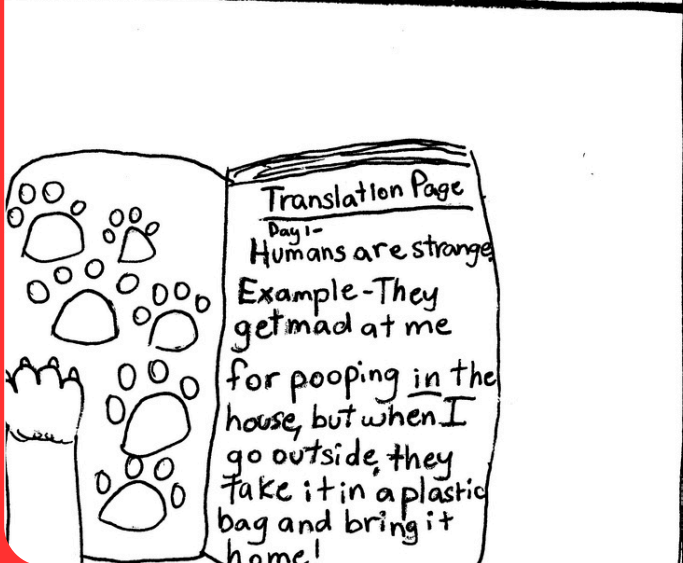 Translation Page
Day 1-
Humans are strange.
Example-They
get mad at me
for pooping in the
house, but when I
go outside, they
take it in a plastic
bag and bring it
home!